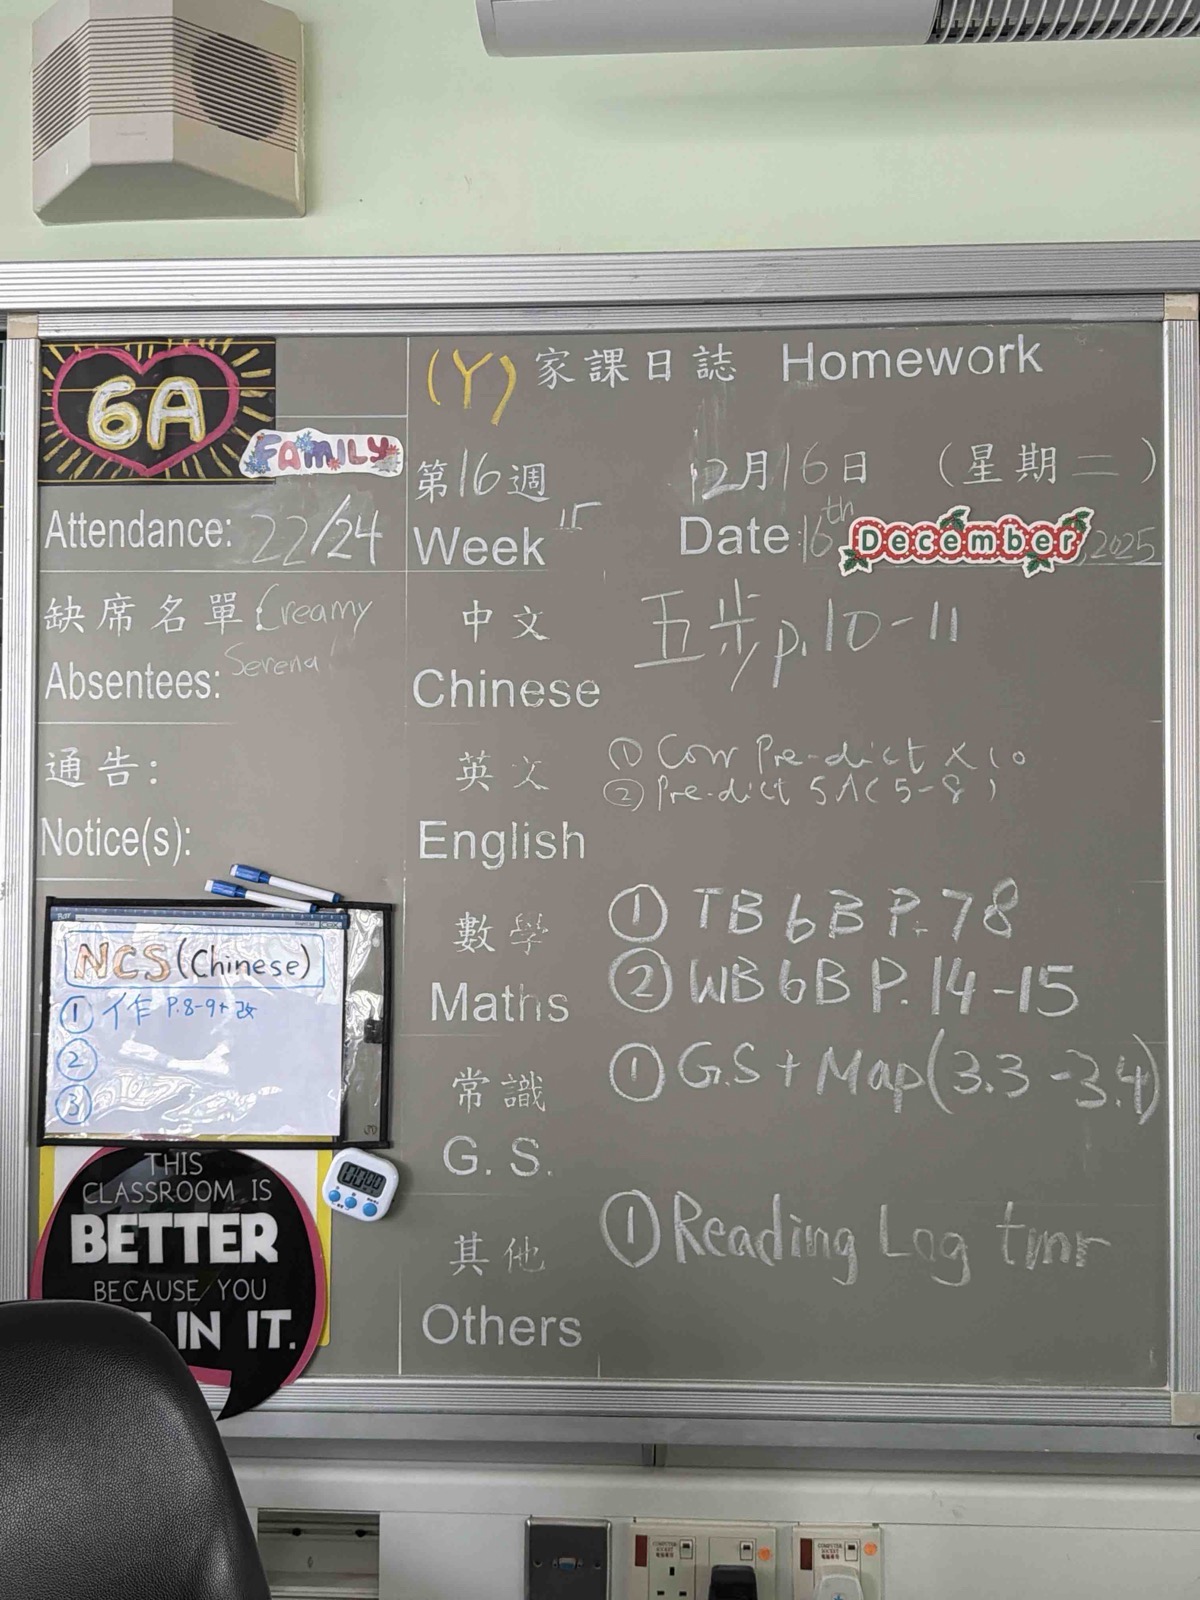 6A
FAMILY
Attendance: 22/24
缺席名單: Creamy
Absentees: Serena
通告:
Notice(s):
NCS (Chinese)
① 作 P.8-9+改
②
③
THIS
CLASSROOM IS
BETTER
BECAUSE YOU
IN IT.
(Y) 家課日誌 Homework
第16週 12月16日 (星期二)
Week 15 Date: 16th December, 2025
中文 五步 p.10-11
Chinese
英文 ① Corr Pre-dict x10
② Pre-dict 5A(5-8)
English
數學 ① TB 6B P.78
Maths ② WB 6B P.14-15
常識 ① G.S + Map(3.3-3.4)
G. S.
其他 ① Reading Log tmr
Others
00:00
COMPUTER
SOCKET
COMPUTER
SOCKET